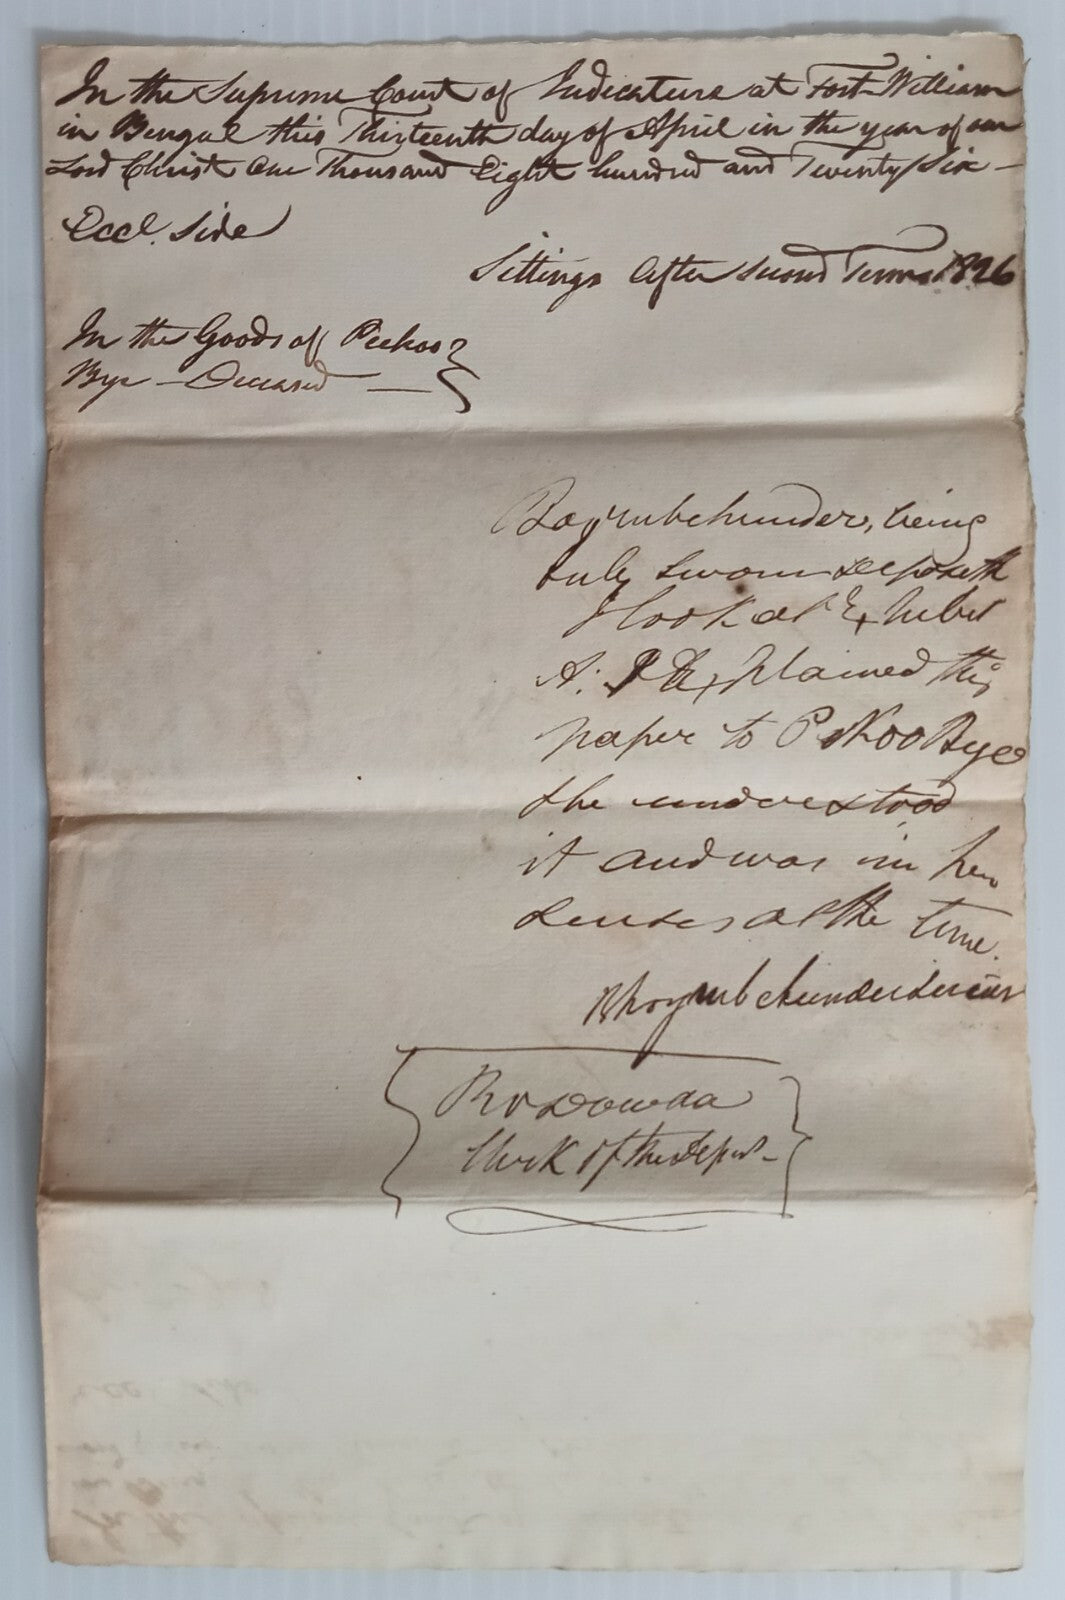 In the Supreme Court of Judicature at Fort William
in Bengal this Thirteenth day of April in the year of our
Lord Christ One Thousand Eight hundred and Twenty Six —
Eccl. Side
Sittings After Second Term 1826
In the Goods of Peekoo
Bye — Deceased —
being
duly sworn deposeth
I look at Exhibit
A. I Explained this
paper to Peekoo Bye
she understood
it and was in her
senses at the time.
Clerk of the Depos -